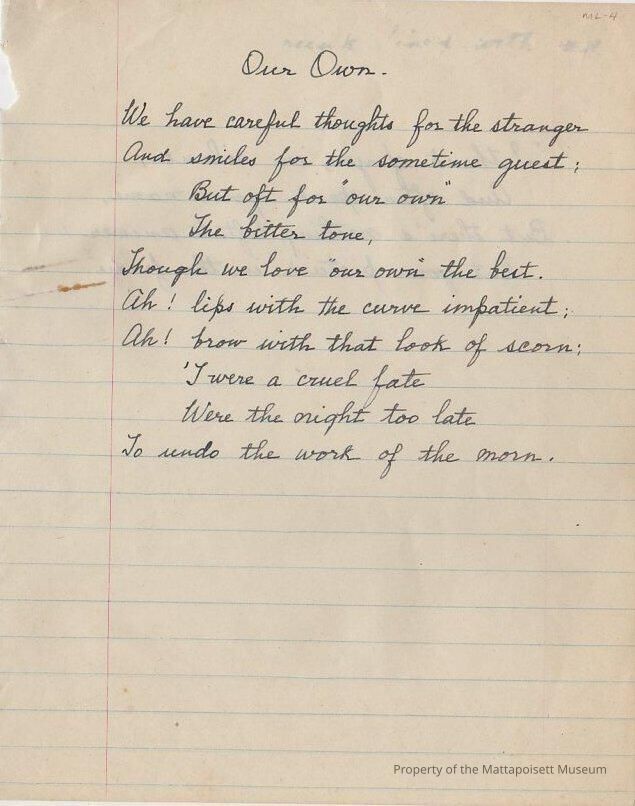 ML-4
Our Own.
We have careful thoughts for the stranger
And smiles for the sometime guest;
But oft for "our own"
The bitter tone,
Though we love "our own" the best.
Ah! lips with the curve impatient;
Ah! brow with that look of scorn;
'Twere a cruel fate
Were the night too late
To undo the work of the morn.
Property of the Mattapoisett Museum